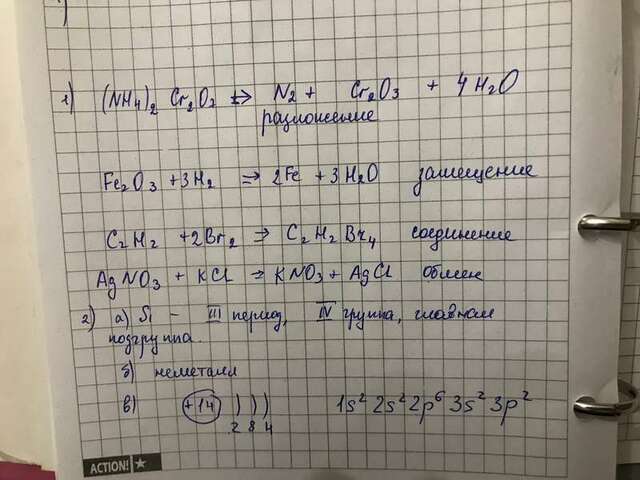 1) (NH4)2 Cr2O7 ⇒ N2 + Cr2O3 + 4H2O
разложение
Fe2O3 + 3H2 ⇒ 2Fe + 3H2O замещение
C2H2 + 2Br2 ⇒ C2H2Br4 соединение
AgNO3 + KCl ⇒ KNO3 + AgCl обмен
2) а) Si - III период, IV группа, главная
подгруппа.
б) неметалл
в) +14 ) ) ) 1s² 2s² 2p⁶ 3s² 3p²
2 8 4
ACTION!